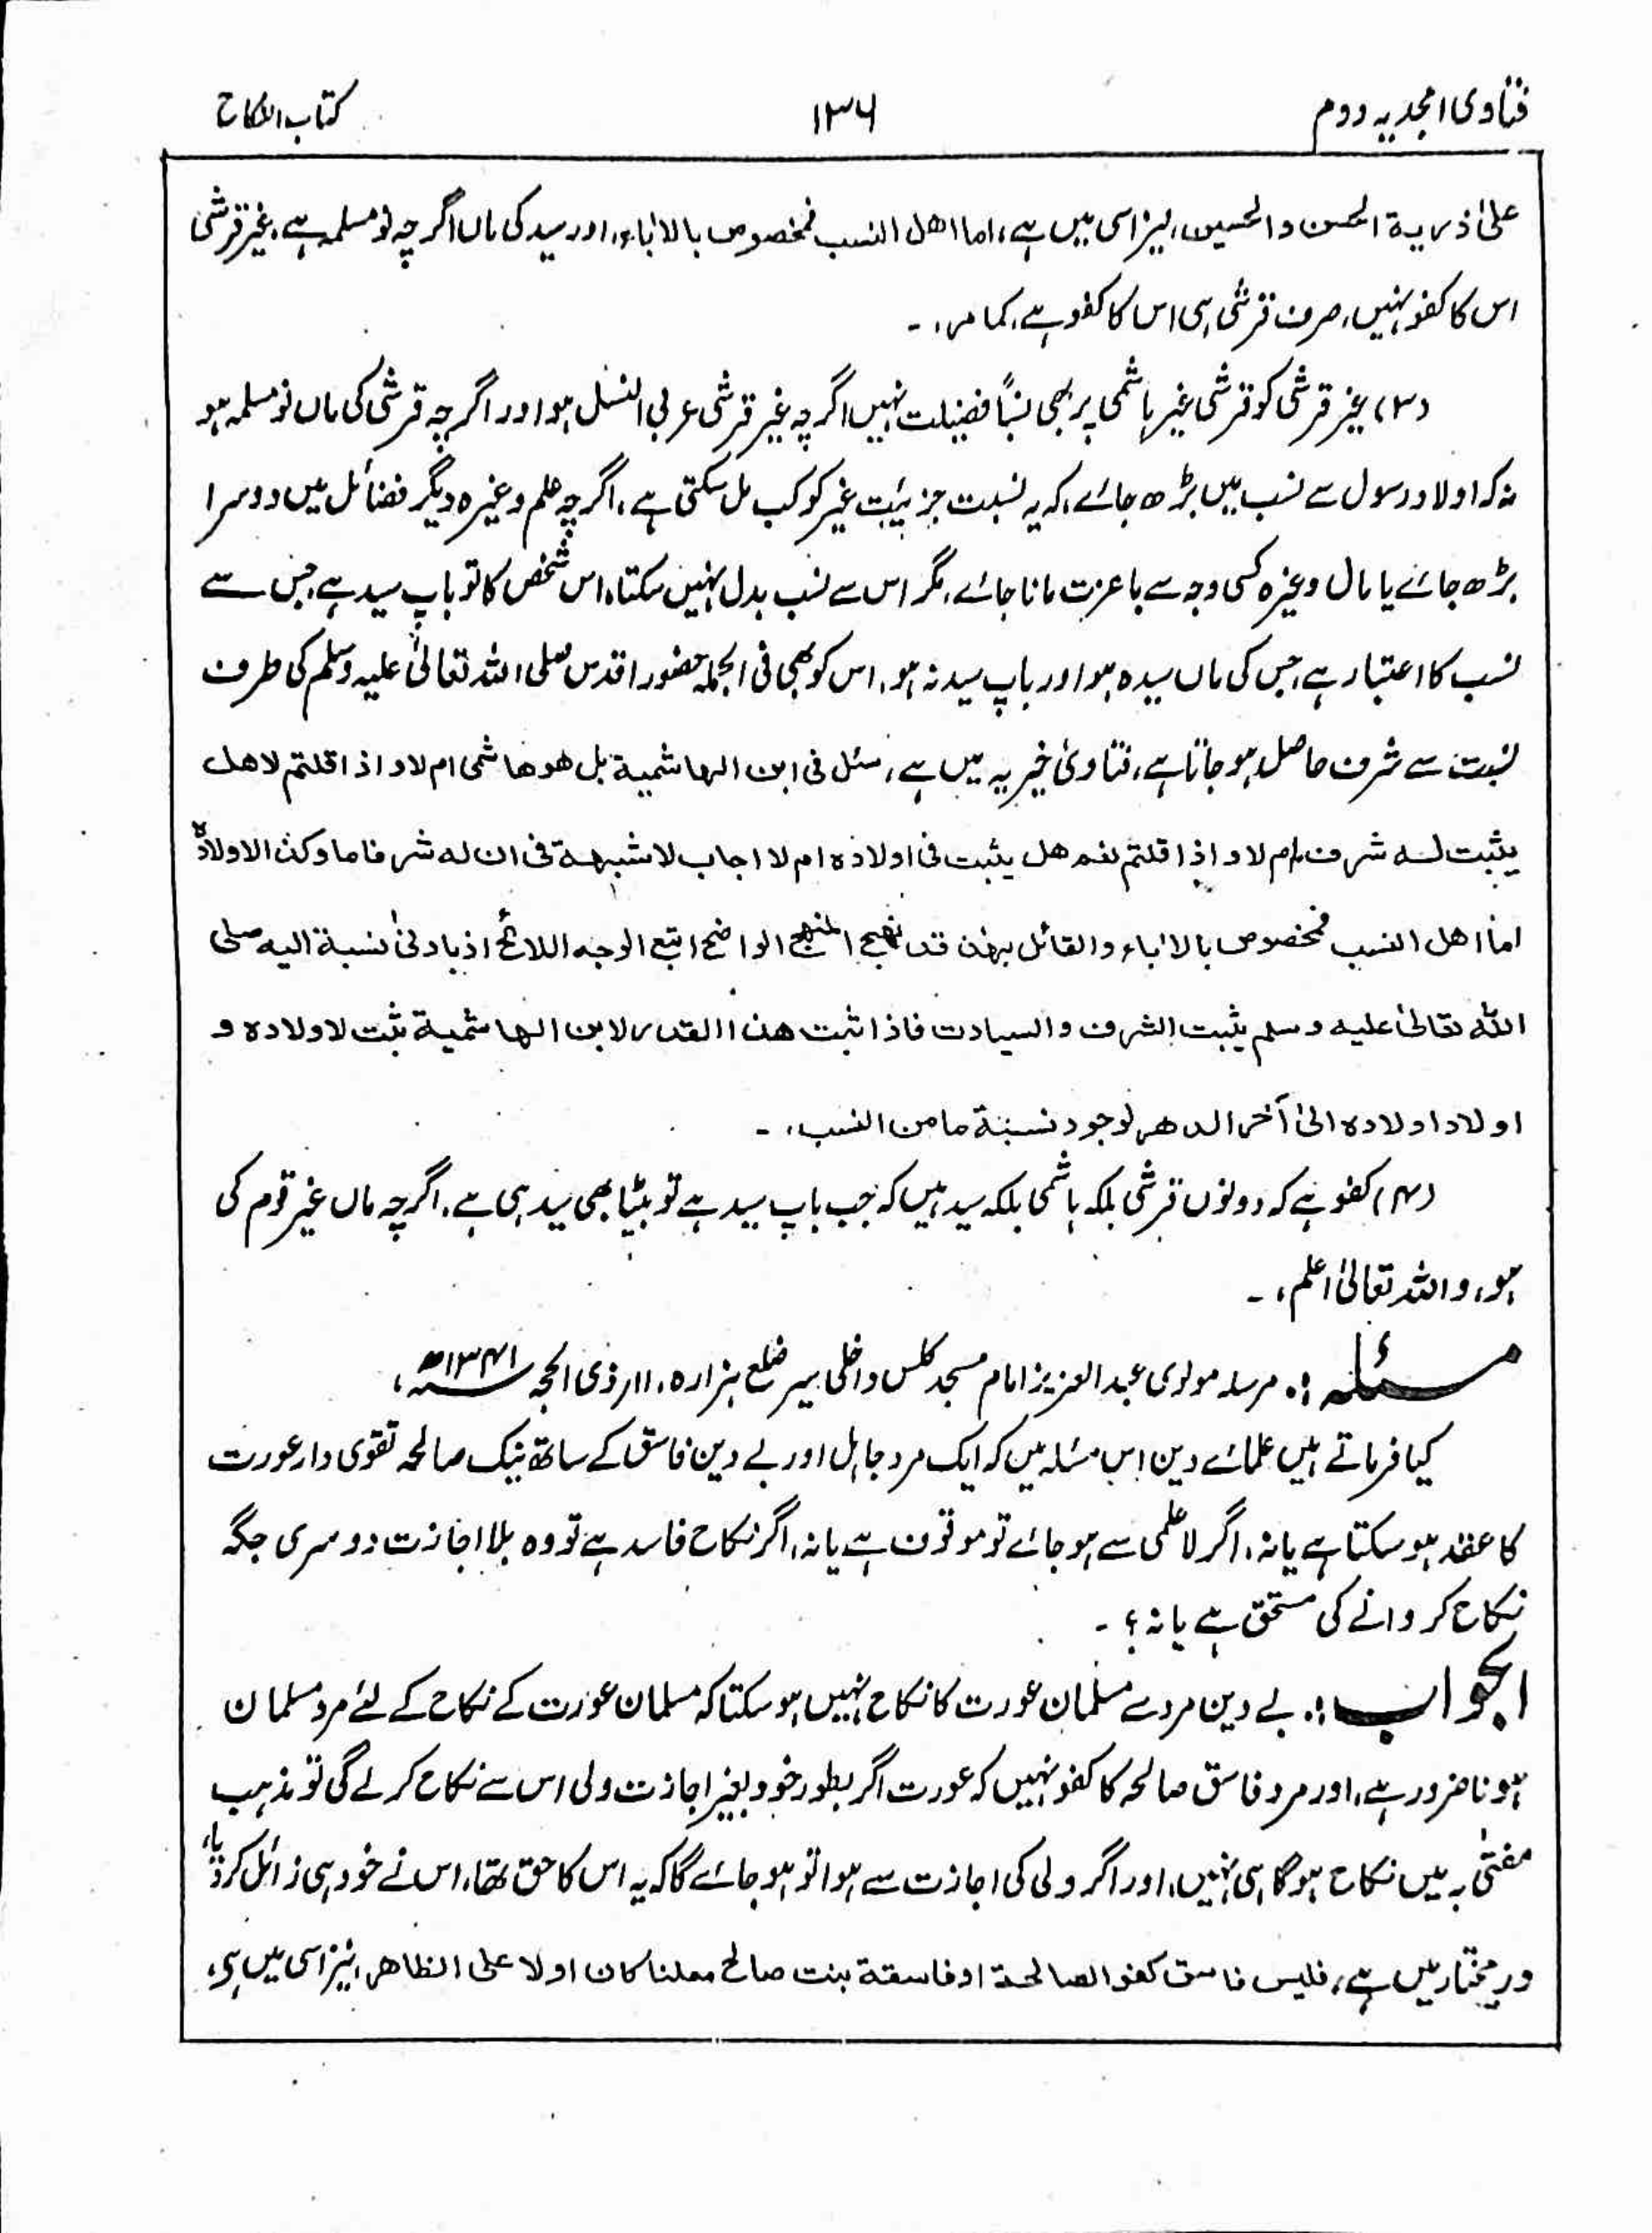 فتاوی امجدیہ دوم
۱۳۶
کتاب النکاح
علیٰ ذریۃ الحسن والحسین، نیز اسی میں ہے، اما اھل النسب فمخصوص بالاٰباء، اور سید کی ماں اگرچہ نو مسلمہ ہے، غیر قرشی
اس کا کفو نہیں، صرف قرشی ہی اس کا کفو ہے، کما مر، ۔
(۳) غیر قرشی کو قرشی غیر ہاشمی پر بھی نسباً فضیلت نہیں اگرچہ غیر قرشی عربی النسل ہو اور اگرچہ قرشی کی ماں نو مسلمہ ہو
نہ کہ اولاد رسول سے نسب میں بڑھ جائے، کہ یہ نسبت جزئیت غیر کو کب مل سکتی ہے، اگرچہ علم وغیرہ دیگر فضائل میں دوسرا
بڑھ جائے یا مال وغیرہ کسی وجہ سے باعزت مانا جائے، مگر اس سے نسب بدل نہیں سکتا، اس شخص کا تو باپ سید ہے جس سے
نسب کا اعتبار ہے، جس کی ماں سیدہ ہو اور باپ سید نہ ہو، اس کو بھی فی الجملہ حضور اقدس صلی اللہ تعالیٰ علیہ وسلم کی طرف
نسبت سے شرف حاصل ہو جاتا ہے، فتاویٰ خیریہ میں ہے، سئل فی ابن الھاشمیۃ بل ھو ھاشمی ام لا و اذا قلتم لا ھل
یثبت لہ شرف ام لا و اذا قلتم نعم ھل یثبت فی اولادہ ام لا اجاب لا شبھۃ فی ان لہ شرفا ما وکذا لاولادہ
اما اھل النسب فمخصوص بالاٰباء والقائل بھذا قد نھج المنھج الواضح اتبع الوجہ اللائح اذ بادنیٰ نسبۃ الیہ صلی
اللہ تعالیٰ علیہ وسلم یثبت الشرف والسیادت فاذا ثبت ھذا القدر لابن الھاشمیۃ ثبت لاولادہ و
اولاد اولادہ الیٰ آخر الدھر لوجود نسبۃ ما من النسب، ۔
(۴) کفو ہے کہ دونوں قرشی بلکہ ہاشمی بلکہ سید ہیں کہ جب باپ سید ہے تو بیٹا بھی سید ہی ہے، اگرچہ ماں غیر قوم کی
ہو، واللہ تعالیٰ اعلم، ۔
مسئلہ :۔ مرسلہ مولوی عبد العزیز امام مسجد کلس داخلی بیر ضلع ہزارہ، ۱۱ر ذی الحجہ ۱۳۴۱ھ،
کیا فرماتے ہیں علمائے دین اس مسئلہ میں کہ ایک مرد جاہل اور بے دین فاسق کے ساتھ نیک صالحہ تقوی دار عورت
کا عقد ہو سکتا ہے یا نہ، اگر لا علمی سے ہو جائے تو موقوف ہے یا نہ، اگر نکاح فاسد ہے تو وہ بلا اجازت دوسری جگہ
نکاح کروانے کی مستحق ہے یا نہ؟ ۔
الجواب :۔ بے دین مرد سے مسلمان عورت کا نکاح نہیں ہو سکتا کہ مسلمان عورت کے نکاح کے لئے مرد مسلمان
ہونا ضرور ہے، اور مرد فاسق صالحہ کا کفو نہیں کہ عورت اگر بطور خود بغیر اجازت ولی اس سے نکاح کر لے گی تو مذہب
مفتیٰ بہ میں نکاح ہوگا ہی نہیں، اور اگر ولی کی اجازت سے ہوا تو ہو جائے گا کہ یہ اس کا حق تھا، اس نے خود ہی زائل کر دیا،
در مختار میں ہے، فلیس فاسق کفوا لصالحۃ او فاسقۃ بنت صالح معلنا کان اولا علی الظاھر، نیز اسی میں ہے،